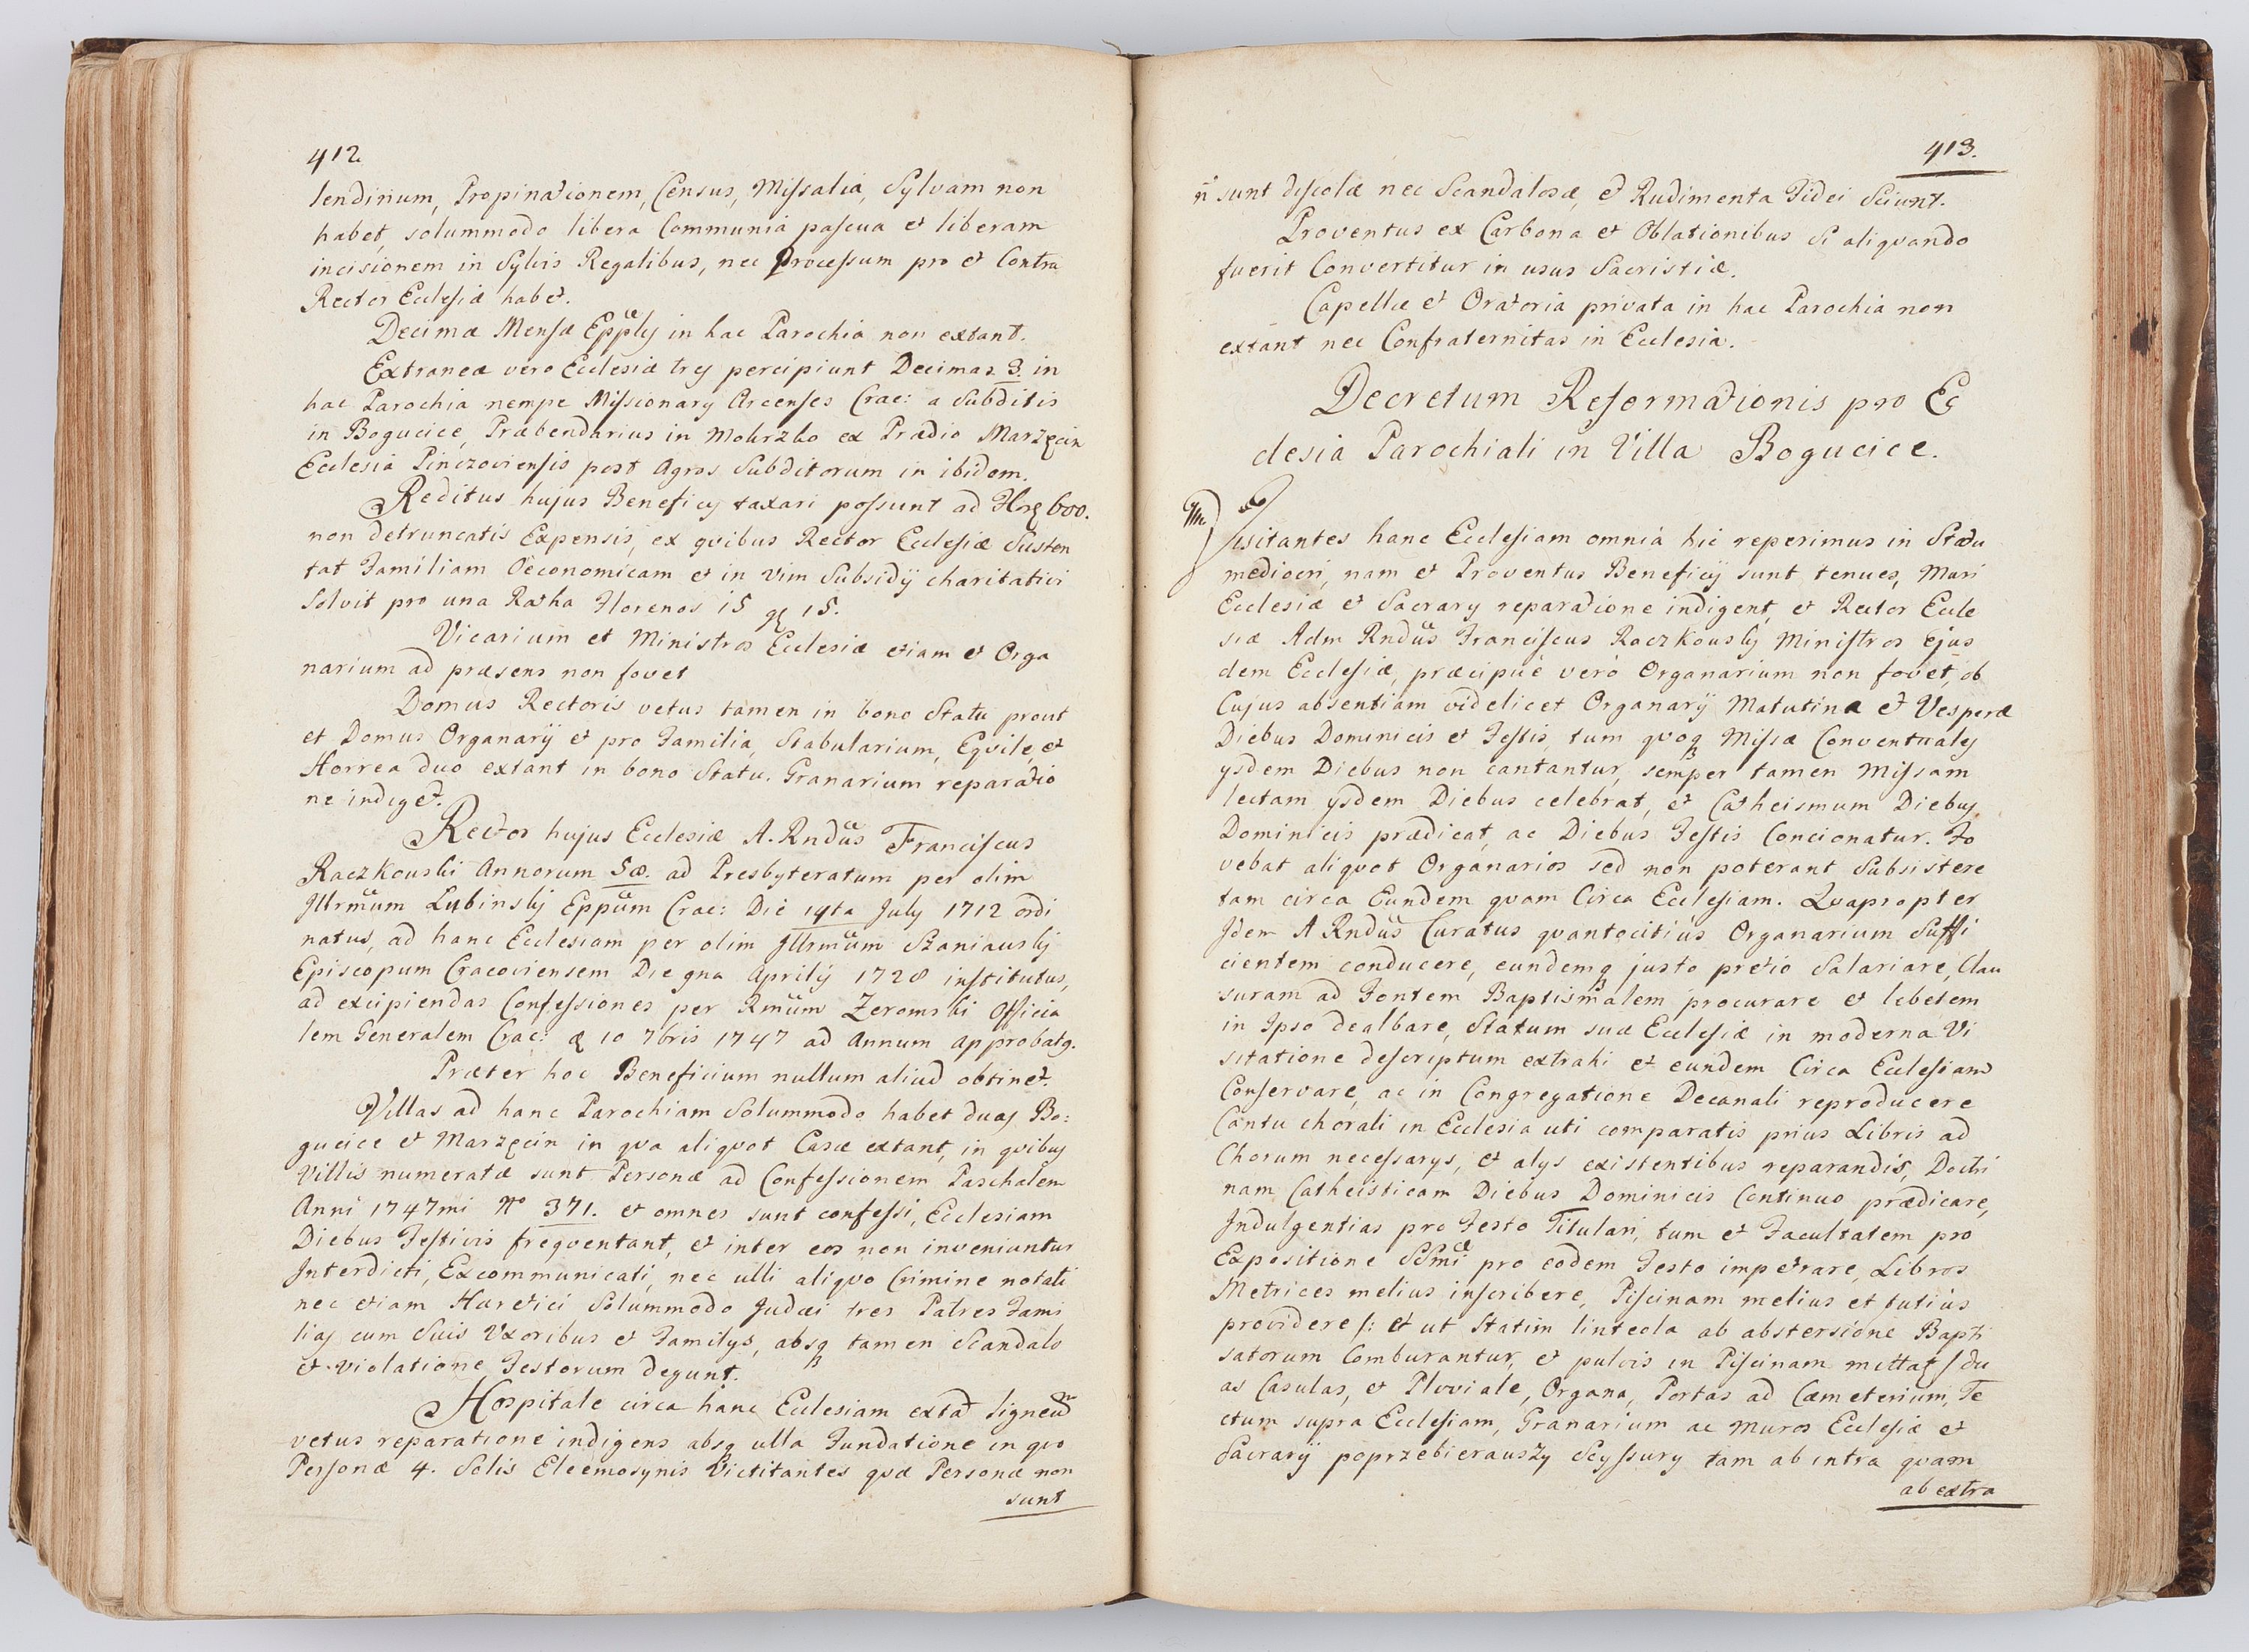 412
lendinum, Propinationem, Census, Missalia, Sylvam non
habet, solummodo libera Communia pascua et liberam
incisionem in Sylvis Regalibus, nec Processum pro et Contra
Rector Ecclesiæ habet.
Decimæ Mensæ Epplis in hac Parochia non extant.
Extraneæ vero Ecclesiæ tres percipiunt Decimas 3. in
hac Parochia nempe Missionarij Arcenses Crac: a Subditis
in Bogucice, Præbendarius in Mokrzko ex Prædio Marzęcin
Ecclesia Pinczoviensis post Agros Subditorum in ibidem.
Reditus hujus Beneficij taxari possunt ad 600.
non detruncatis Expensis, ex quibus Rector Ecclesiæ Susten
tat Familiam Oeconomicam et in vim Subsidij charitativi
Solvit pro una Ratha Florenos 15 gr 15.
Vicarium et Ministros Ecclesiæ etiam et Orga
narium ad præsens non fovet
Domus Rectoris vetus tamen in bono Statu prout
et Domus Organarij et pro Familia, Stabularium, Eqvile, et
Horrea duo extant in bono Statu. Granarium reparatio
ne indiget.
Rector hujus Ecclesiæ A. Rndus Franciscus
Raczkowski Annorum ad Presbyteratum per olim
Illrmum Lubinskj Eppum Crac: Die 14ta July 1712 ordi
natus, ad hanc Ecclesiam per olim Illrmum Szaniawskj
Episcopum Cracoviensem Die gna Aprilij 1728 institutus,
ad excipiendas Confessiones per Rmum Zeromski Officia
lem Generalem Crac: 10 7bris 1747 ad Annum approbatq.
Præter hoc Beneficium nullum aliud obtinet.
Villas ad hanc Parochiam Solummodo habet duas Bo:
gucice et Marzęcin in qva aliqvot Casæ extant, in qvibus
Villis numeratæ sunt Personæ ad Confessionem Paschalem
Anni 1747mi No 371. et omnes sunt confessi, Ecclesiam
Diebus Festivis freqventant, et inter eos non inveniuntur
Interdicti, Excommunicati, nec ulli aliqvo Crimine notati
nec etiam Hæretici Solummodo Judæi tres Patres Fami
lias cum Suis Uxoribus et Familys, absq tamen Scandalo
et violatione Festorum degunt.
Hospitale circa hanc Ecclesiam extat ligneum
vetus reparatione indigens absq ulla Fundatione in qvo
Personæ 4. Solis Eleemosynis Victitantes qvæ Personæ non
sunt
413.
n sunt discolæ nec Scandalosæ, et Rudimenta Fidei Sciunt.
Proventus ex Carbona et Oblationibus Si aliqvando
fuerit Convertitur in usus Sacristiæ.
Capellæ et Oratoria privata in hac Parochia non
extant nec Confraternitas in Ecclesia.
Decretum Reformationis pro Ec
clesia Parochiali in Villa Bogucice.
Visitantes hanc Ecclesiam omnia hic reperimus in Statu
mediocri, nam et Proventus Beneficij sunt tenues, Muri
Ecclesiæ et Sacrarij reparatione indigent, et Rector Eccle
siæ Adm Rndus Franciscus Raczkowskj Ministros ejus
dem Ecclesiæ, præcipue vero Organarium non fovet, ob
Cujus absentiam videlicet Organarij Matutinæ et Vesperæ
Diebus Dominicis et Festis, tum qvoq Missæ Conventuales
ysdem Diebus non cantantur, semper tamen Missam
lectam ysdem Diebus celebrat, et Catheismum Diebus
Dominicis prædicat, ac Diebus Festis Concionatur. Fo
vebat aliqvot Organarios sed non poterant Subsistere
tam circa Eundem qvam Circa Ecclesiam. Qvapropter
Idem A Rndus Curatus qvantocitius Organarium Suffi
cientem conducere, eundemq justo pretio Salariare, Clau
suram ad Fontem Baptismalem procurare et lebetem
in Ipso dealbare, Statum suæ Ecclesiæ in moderna Vi
sitatione descriptum extrahi et eundem Circa Ecclesiam
Conservare, ac in Congregatione Decanali reproducere
Cantu chorali in Ecclesia uti comparatis prius Libris ad
Chorum necessarys, et alys existentibus reparandis, Doctri
nam Catheisticam Diebus Dominicis Continuo prædicare,
Indulgentias pro Festo Titulari, tum et Facultatem pro
Expositione SSmi pro eodem Festo impetrare, Libros
Metrices melius inscribere, Piscinam melius et tutius
providere /: et ut Statim linteola ab abstersione Bapti
satorum Comburantur, et pulvis in Piscinam mittat / du
as Casulas, et Pluviale, Organa, Portas ad Cæmeterium, Te
ctum supra Ecclesiam, Granarium ac Muros Ecclesiæ et
Sacrarij poprzebierawszy Scyssury tam ab intra qvam
ab extra